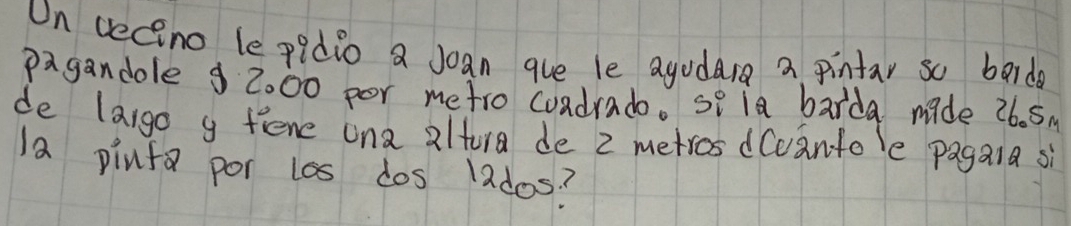 Un vecino le pidio a Joan que le ayudara a pintar su barda
pagandole $ 2.00 por metro cuadrado. si la barda mide 26.5m
de largo y tiene una altura de 2 metros ¿Cuánto le pagara si
la pinta por los dos lados?